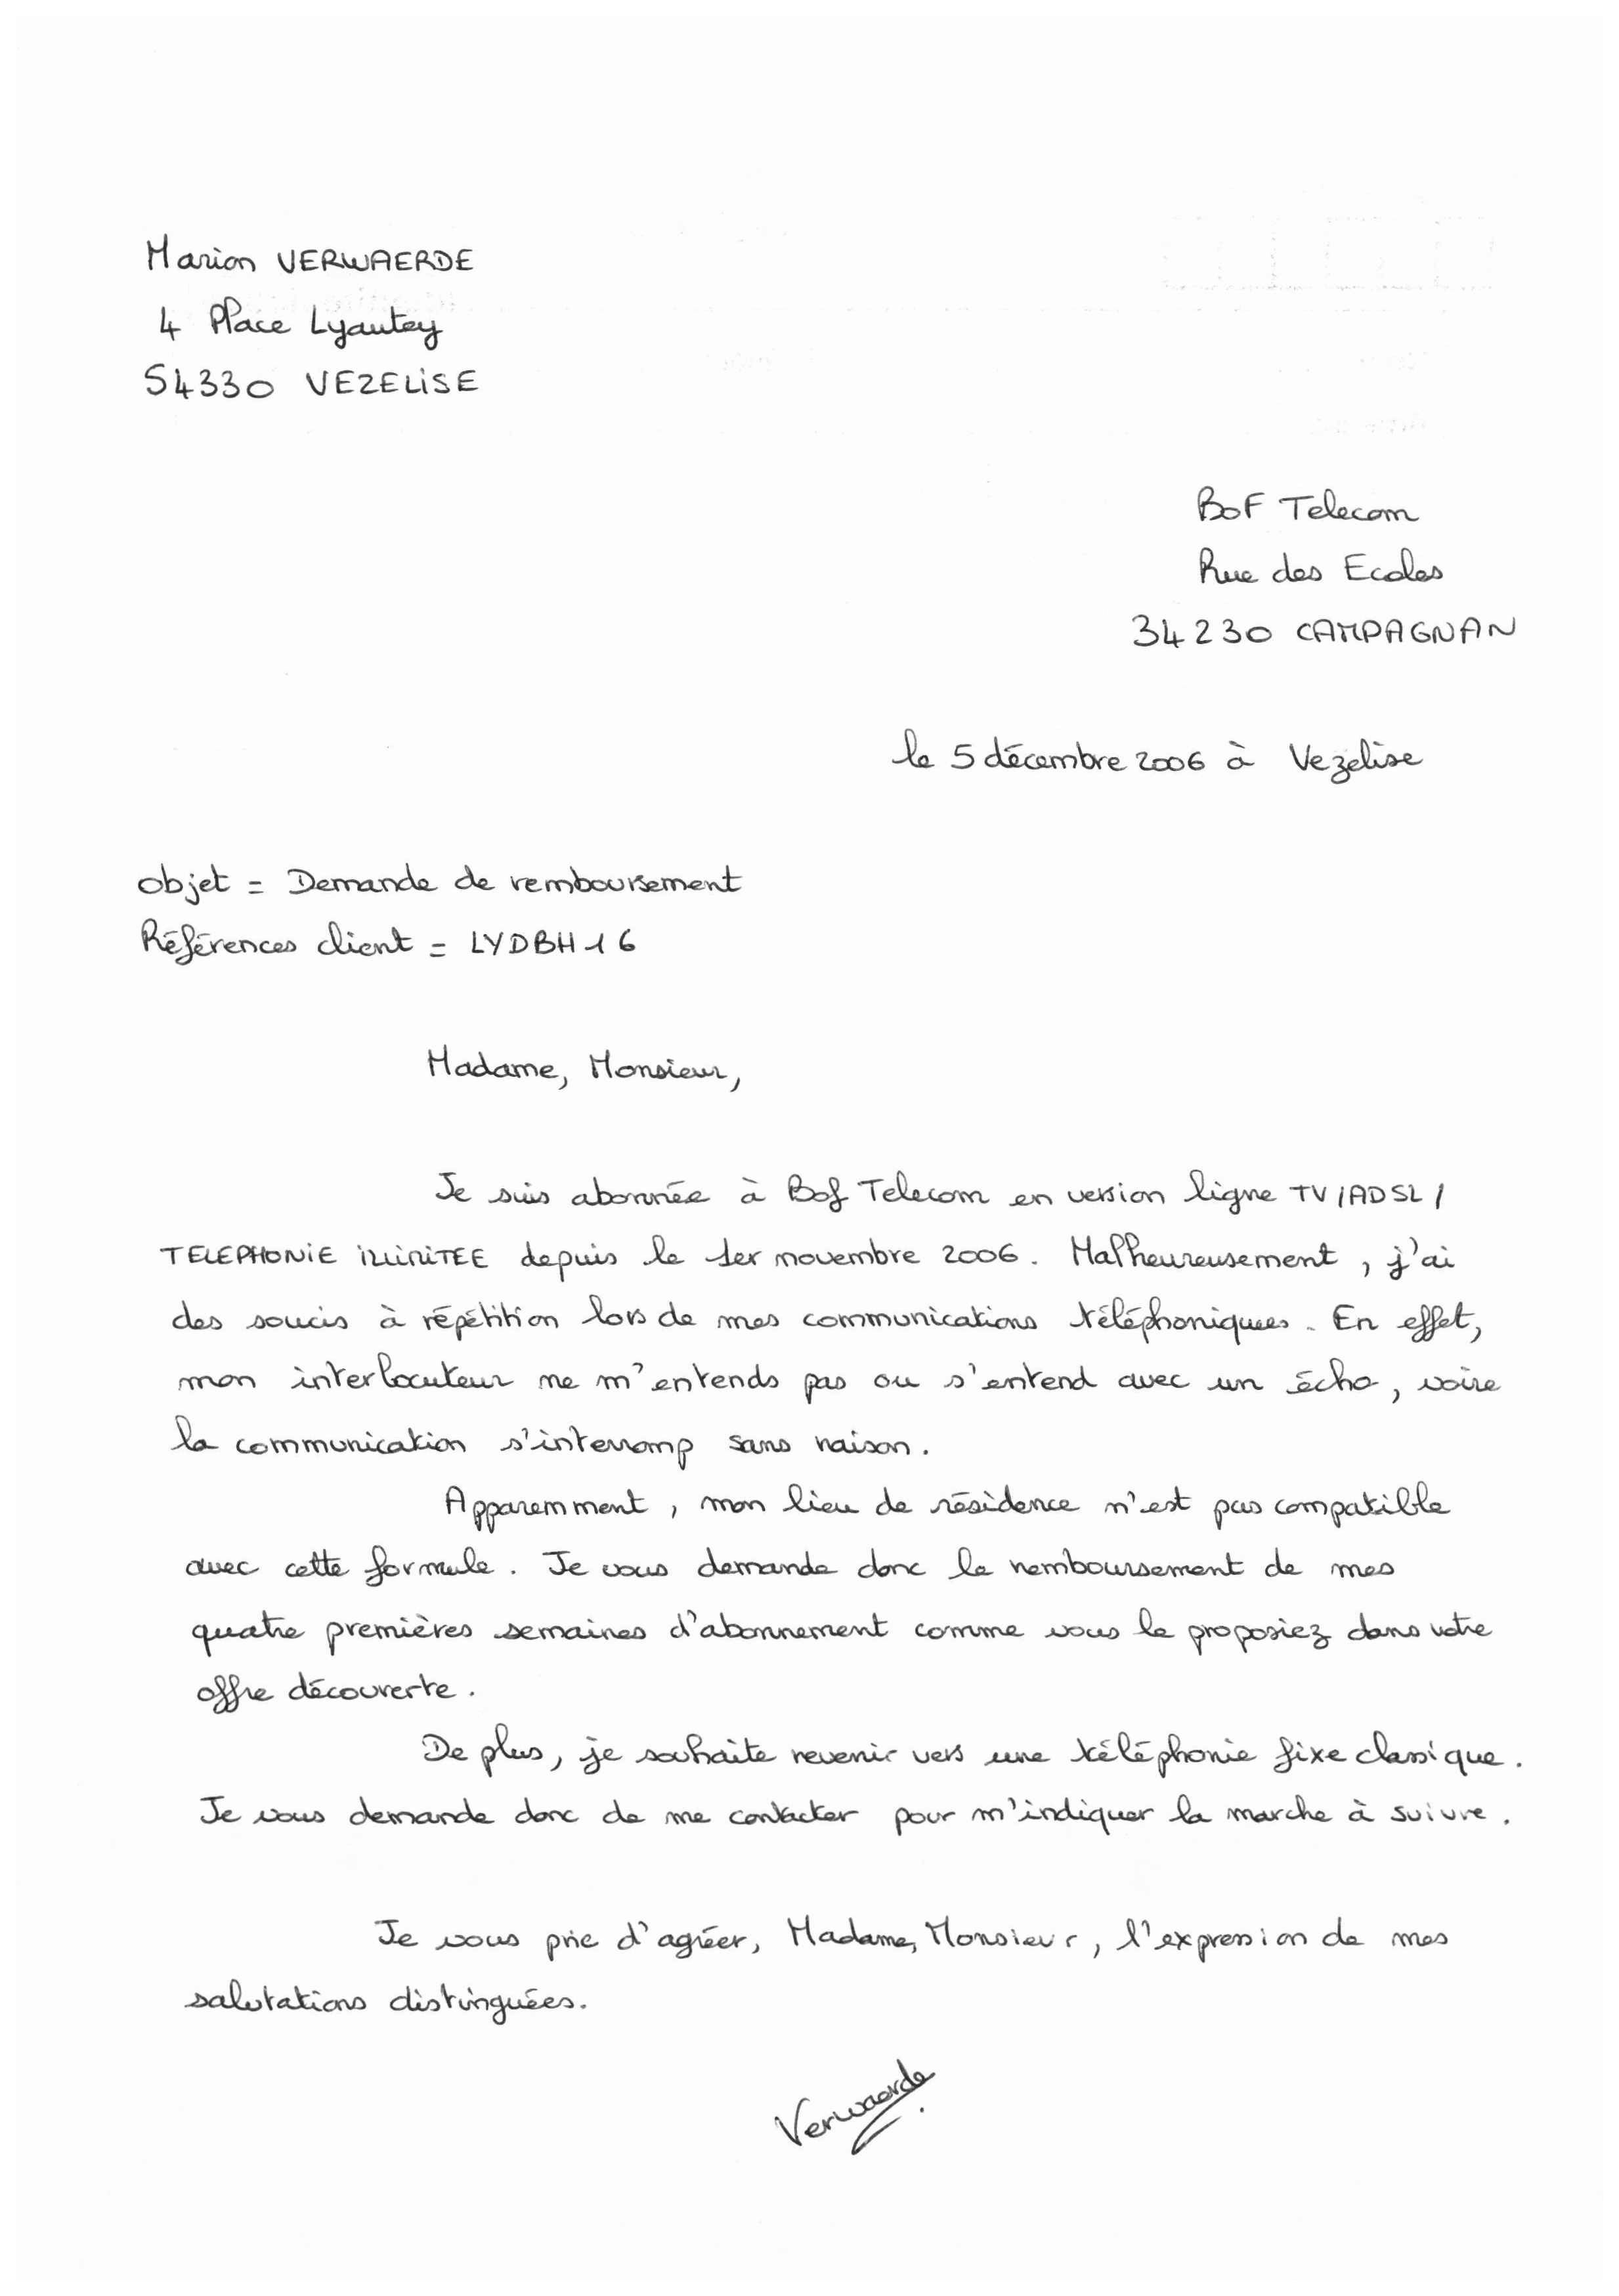 Marion VERWAERDE
4 Place Lyautey
54330 VEZELISE
BoF Telecom
Rue des Ecoles
34230 CAMPAGNAN
le 5 décembre 2006 à Vezelise
objet = Demande de remboursement
Références client = LYDBH16
Madame, Monsieur,
Je suis abonnée à Bof Telecom en version ligne TV/ADSL/
TELEPHONIE ILLIMITEE depuis le 1er novembre 2006. Malheureusement, j'ai
des soucis à répétition lors de mes communications téléphoniques. En effet,
mon interlocuteur ne m'entends pas ou s'entend avec un écho, voire
la communication s'interromp sans raison.
Apparemment, mon lieu de résidence n'est pas compatible
avec cette formule. Je vous demande donc le remboursement de mes
quatre premières semaines d'abonnement comme vous le proposiez dans votre
offre découverte.
De plus, je souhaite revenir vers une téléphonie fixe classique.
Je vous demande donc de me contacter pour m'indiquer la marche à suivre.
Je vous prie d'agréer, Madame, Monsieur, l'expression de mes
salutations distinguées.
Verwaerde